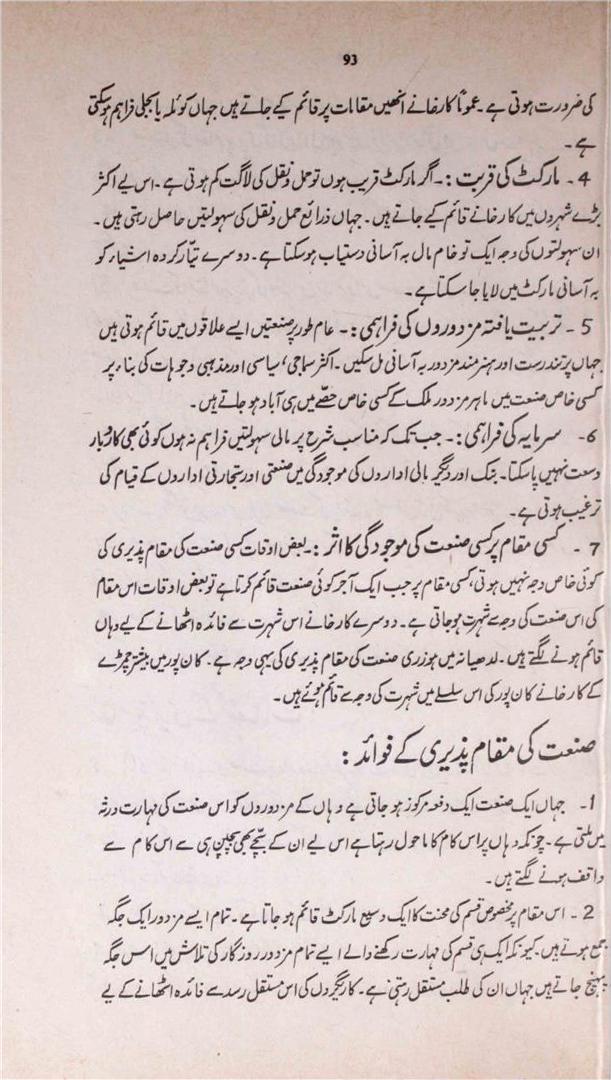 93
کی ضرورت ہوتی ہے۔ عموماً کارخانے انھیں مقامات پر قائم کیے جاتے ہیں جہاں کوئلہ یا بجلی فراہم ہوسکتی
ہے۔
4 ۔ مارکٹ کی قربت :۔ اگر مارکٹ قریب ہوں تو حمل و نقل کی لاگت کم ہوتی ہے۔ اس لیے اکثر
بڑے شہروں میں کارخانے قائم کیے جاتے ہیں۔ جہاں ذرائع حمل و نقل کی سہولتیں حاصل رہتی ہیں۔
ان سہولتوں کی وجہ ایک تو خام مال بہ آسانی دستیاب ہوسکتا ہے۔ دوسرے تیّار کردہ اشیاء کو
بہ آسانی مارکٹ میں لایا جا سکتا ہے۔
5 ۔ تربیت یافتہ مزدوروں کی فراہمی :۔ عام طور پر صنعتیں ایسے علاقوں میں قائم ہوتی ہیں
جہاں پر تندرست اور ہنرمند مزدور بہ آسانی مل سکیں۔ اکثر سماجی، سیاسی اور مذہبی وجوہات کی بناء پر
کسی خاص صنعت میں ماہر مزدور ملک کے کسی خاص حصّے میں ہی آباد ہو جاتے ہیں۔
6۔ سرمایہ کی فراہمی :۔ جب تک کہ مناسب شرح پر مالی سہولتیں فراہم نہ ہوں کوئی بھی کاروبار
وسعت نہیں پا سکتا۔ بنک اور دیگر مالی اداروں کی موجودگی میں صنعتی اور تجارتی اداروں کے قیام کی
ترغیب ہوتی ہے۔
7 ۔ کسی مقام پر کسی صنعت کی موجودگی کا اثر :۔ بعض اوقات کسی صنعت کی مقام پذیری کی
کوئی خاص وجہ نہیں ہوتی، کسی مقام پر جب ایک آجر کوئی صنعت قائم کرتا ہے تو بعض اوقات اس مقام
کی اس صنعت کی وجہ سے شہرت ہو جاتی ہے۔ دوسرے کارخانے اس شہرت سے فائدہ اٹھانے کے لیے وہاں
قائم ہونے لگتے ہیں۔ لدھیانہ میں ہوزری صنعت کی مقام پذیری کی یہی وجہ ہے۔ کان پور میں بیشتر چمڑے
کے کارخانے کان پور کی اس سلسلے میں شہرت کی وجہ سے قائم ہوئے ہیں۔
صنعت کی مقام پذیری کے فوائد :
1۔ جہاں ایک صنعت ایک دفعہ مرکوز ہو جاتی ہے وہاں کے مزدوروں کو اس صنعت کی مہارت ورثہ
میں ملتی ہے۔ چونکہ وہاں پر اس کام کا ماحول رہتا ہے اس لیے ان کے بچّے بھی بچپن ہی سے اس کام سے
واقف ہونے لگتے ہیں۔
2 ۔ اس مقام پر مخصوص قسم کی محنت کا ایک وسیع مارکٹ قائم ہو جاتا ہے۔ تمام ایسے مزدور ایک جگہ
جمع ہوتے ہیں۔ کیونکہ ایک ہی قسم کی مہارت رکھنے والے ایسے تمام مزدور روزگار کی تلاش میں اس جگہ
پہنچ جاتے ہیں جہاں ان کی طلب مستقل رہتی ہے۔ کاریگروں کی اس مستقل رسد سے فائدہ اٹھانے کے لیے